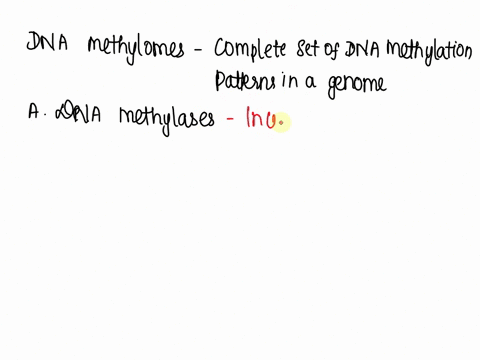 DNA methylomes - Complete set of DNA Methylation
Patterns in a genome
A. DNA methylases - Inv